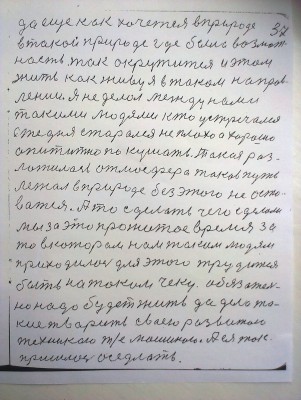 да еще как хочется в природе 37
в такой природе где была возмож
ность так окрутится и этом
жить как живу я в таком направ
лении. Я не делал между нами
такими людями кто встречался
с едня старался не плохо а хорошо
опититно покушать. Такая раз
ложилась атмосфера таков путь
летал в природе без этого не оста
вался. А то сделать чего сделали
мы за это прожитое время за
то в котором нам таким людям
приходилось для этого трудится
быть на таком чеку. обязател
но надо будет жить да дела та
кие тварить своего развитого
техникаю т/е машиною. А ея так
пришлось оседлать.